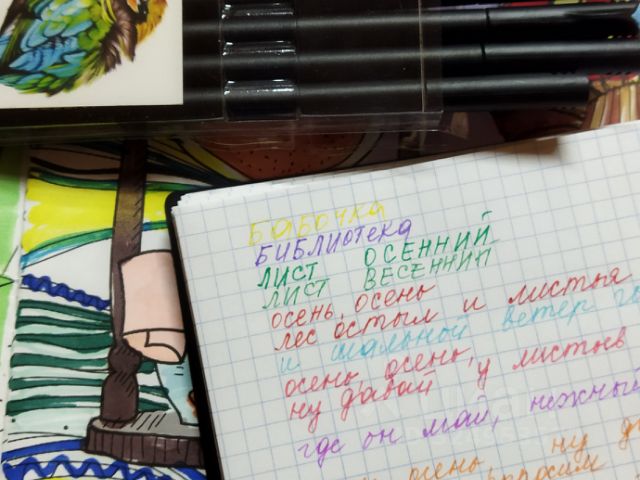 БАБОЧКА
БИБЛИОТЕКА
ЛИСТ ОСЕННИЙ
ЛИСТ ВЕСЕННИЙ
осень, осень
лес остыл и листья
и шальной ветер
осень, осень,
ну давай у листьев
где он май, нежный
осень, ну
спросим